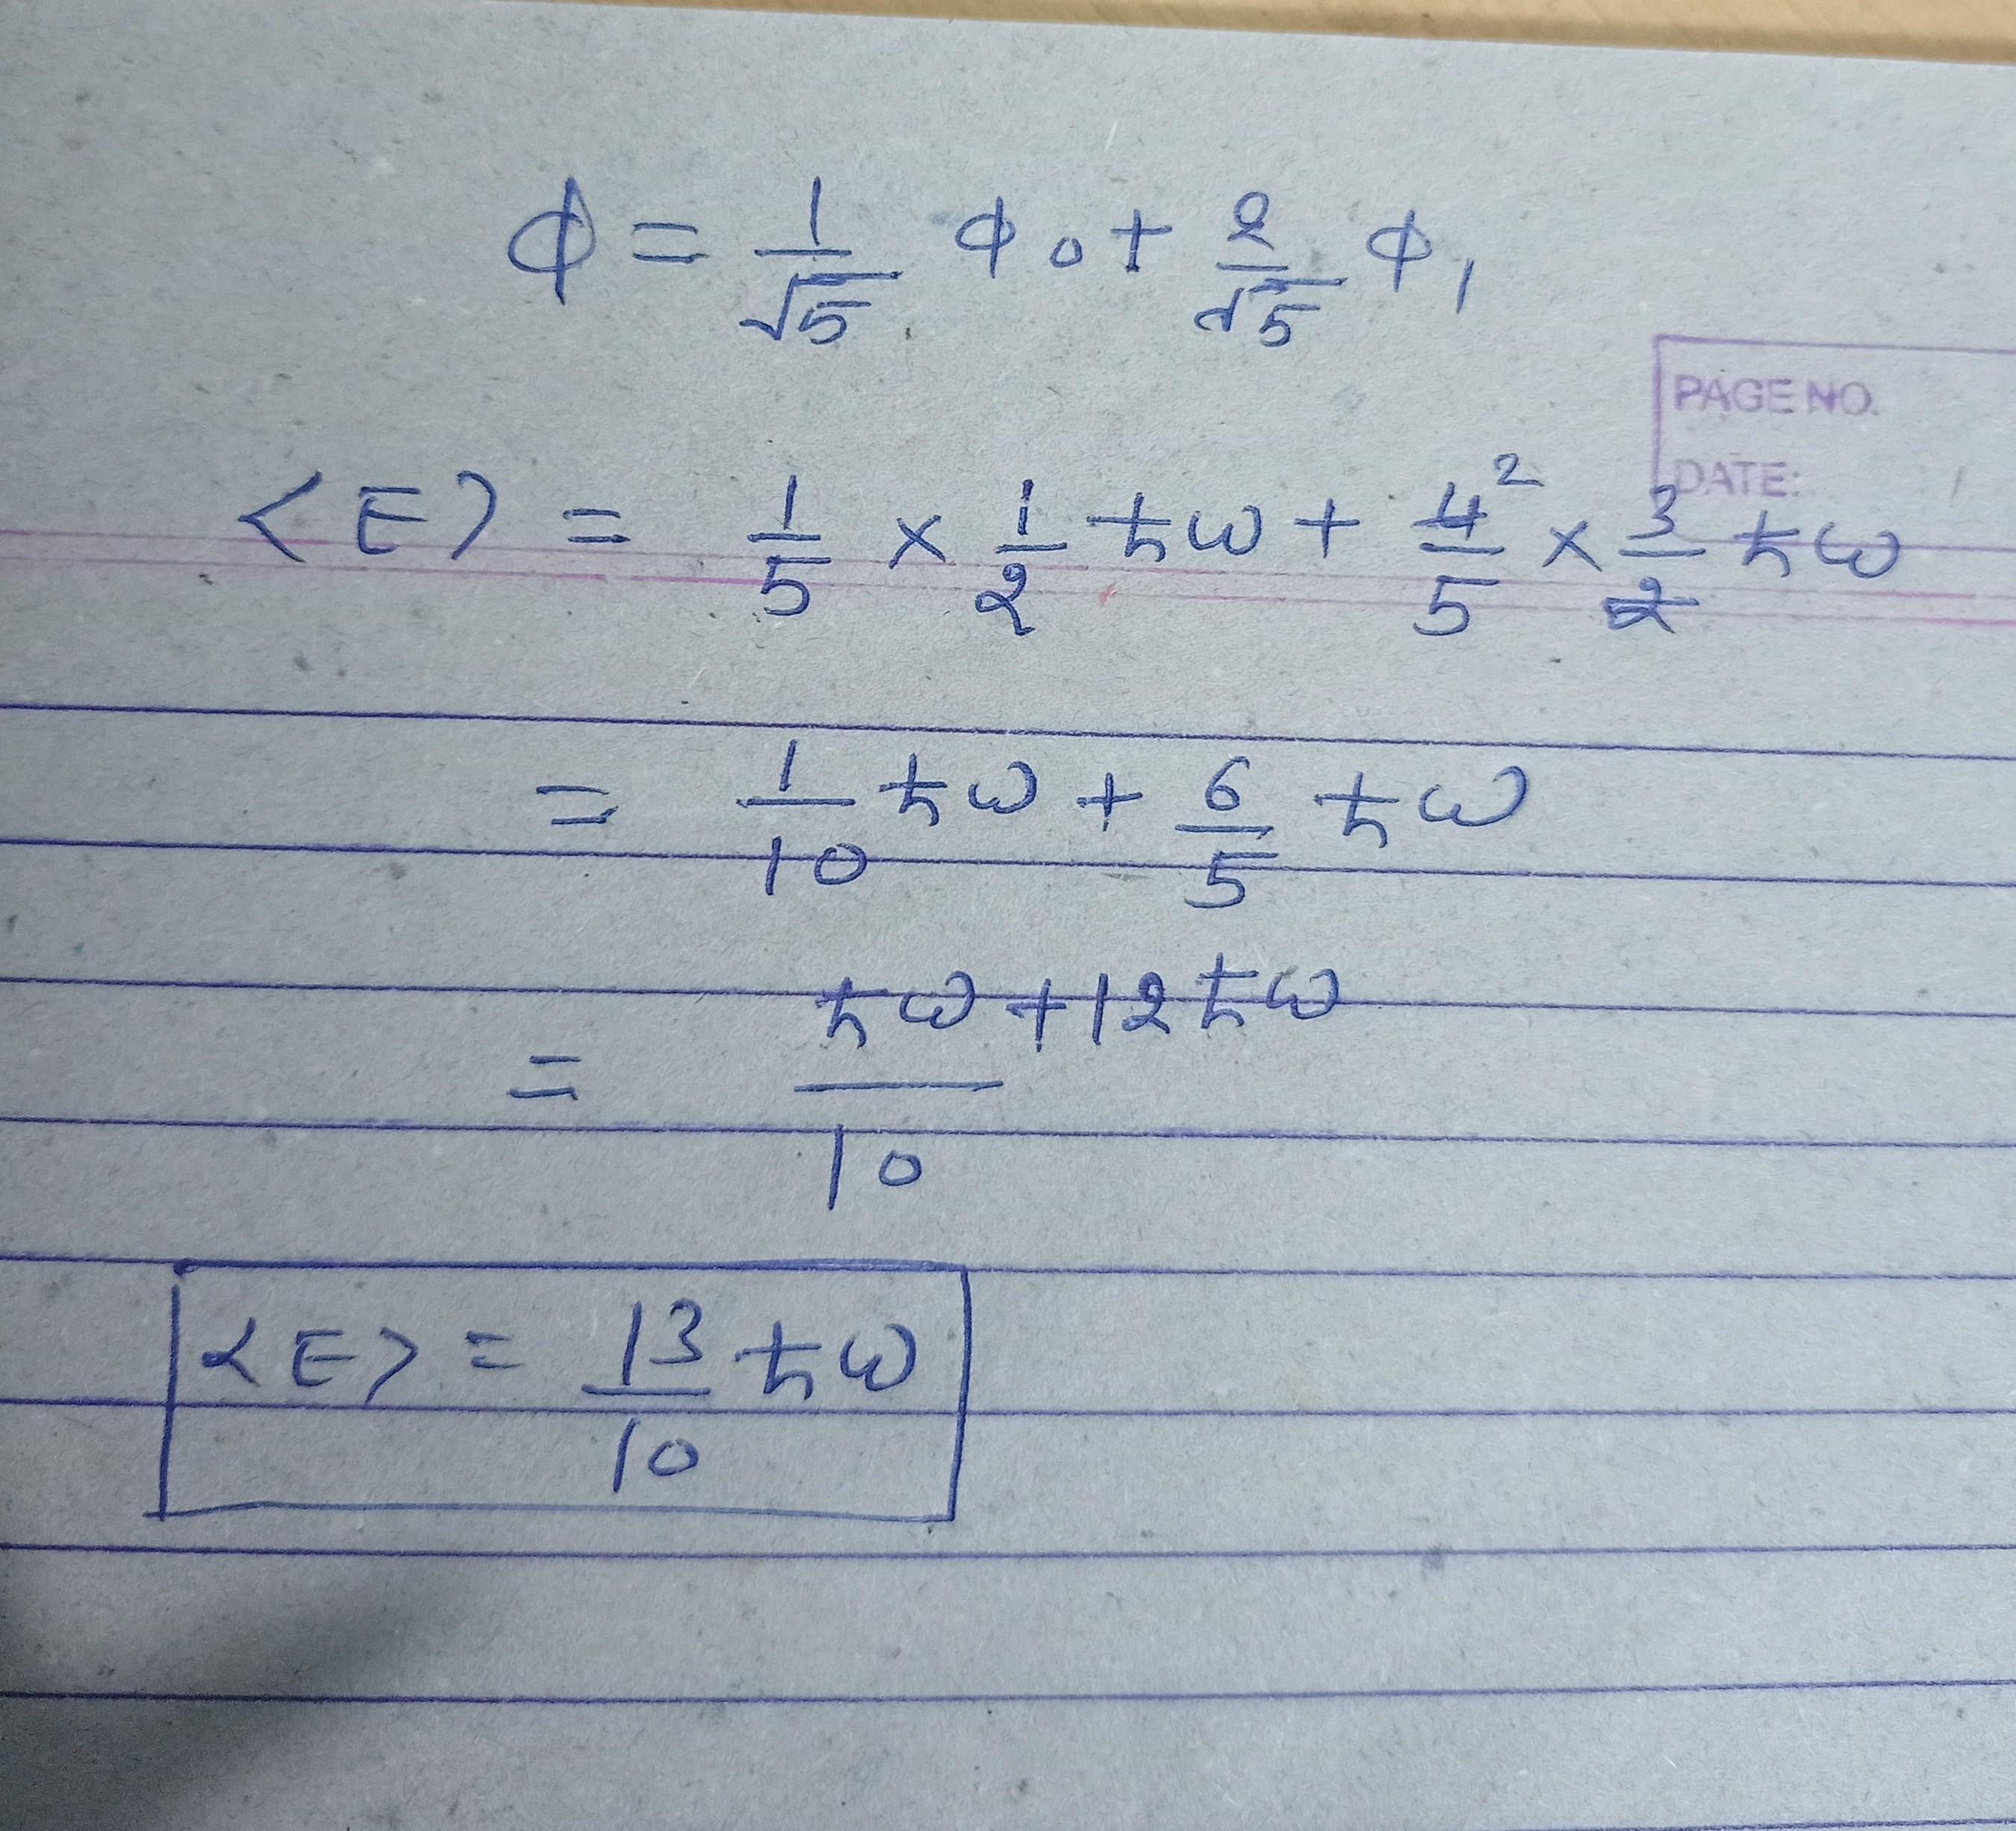 ϕ = 1/√5 ϕ₀ + 2/√5 ϕ₁
PAGE NO.
DATE:
<E> = 1/5 × 1/2 ℏω + 4̶²/5 × 3/2̶ ℏω
= 1/10 ℏω + 6/5 ℏω
= ℏω + 12ℏω / 10
<E> = 13/10 ℏω